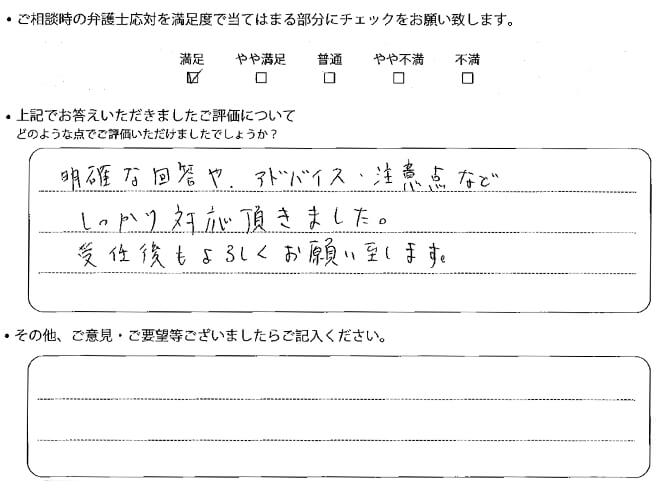 ・ご相談時の弁護士応対を満足度で当てはまる部分にチェックをお願い致します。
満足 やや満足 普通 やや不満 不満
☑ □ □ □ □
・上記でお答えいただきましたご評価について
どのような点でご評価いただけましたでしょうか？
明確な回答や、アドバイス・注意点など
しっかり対応頂きました。
受任後もよろしくお願い至します。
・その他、ご意見・ご要望等ございましたらご記入ください。